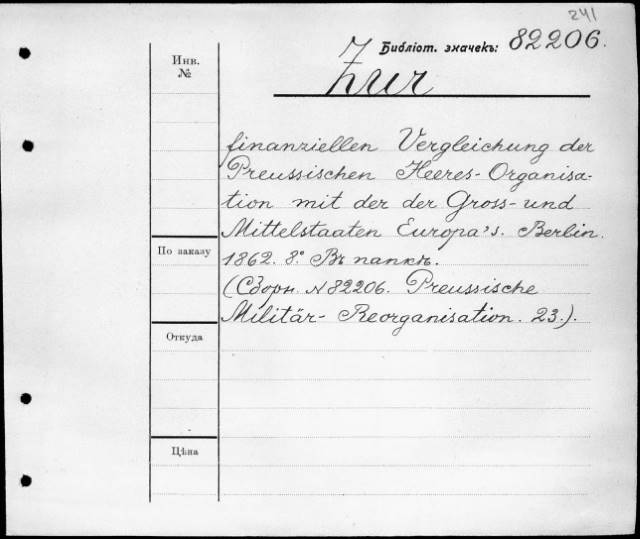 241
Библіот. значекъ: 82206.
Инв.
№
Zur
finanziellen Vergleichung der
Preussischen Heeres-Organisa-
tion mit der der Gross- und
Mittelstaaten Europa's. Berlin.
По заказу
1862. 8°. Въ папкѣ.
(Сборн. N 82206. Preussische
Militär- Reorganisation. 23.).
Откуда
Цѣна